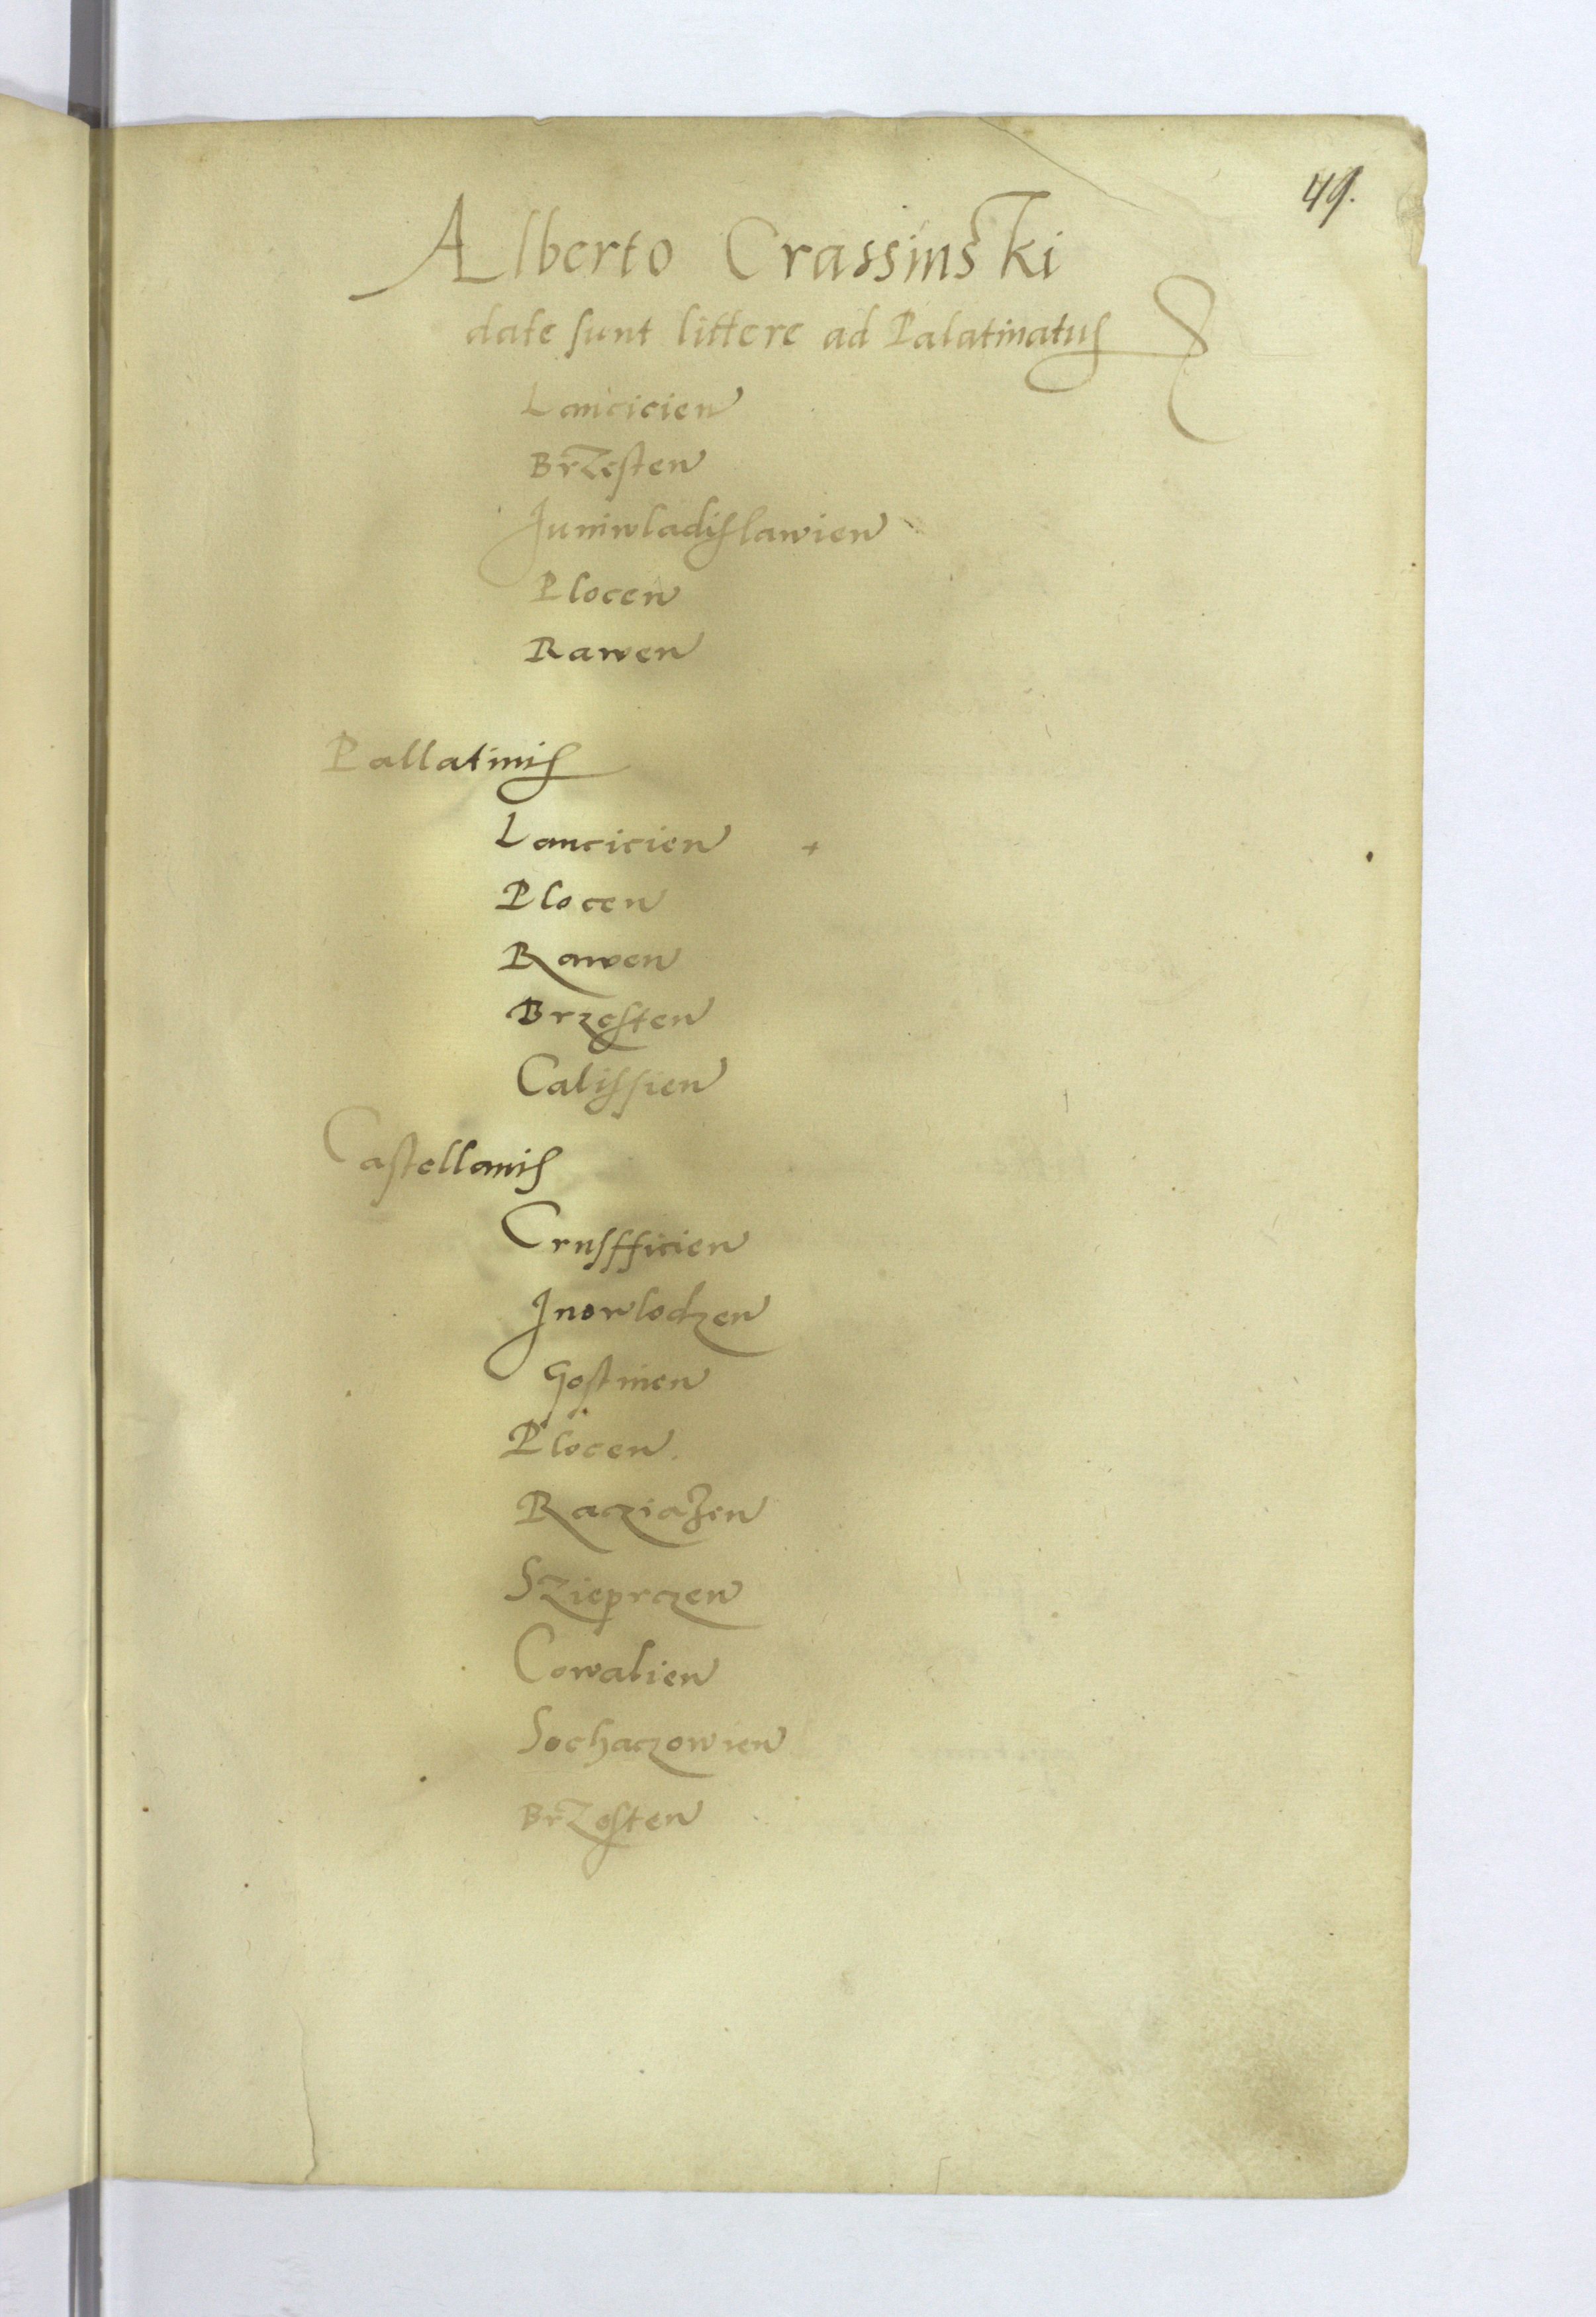 49.
Alberto Crassinski
date sunt littere ad Palatinatus
Lancicien
Brzesten
Juniwladislawien
Plocen
Rawen
Pallatinis
Lancicien +
Plocen
Rawen
Brzesten
Calissien
Castellanis
Crusfficien
Jnowlodzen
Gostinen
Plocen
Racziazen
Szieprczen
Cowalien
Sochaczowien
Brzesten